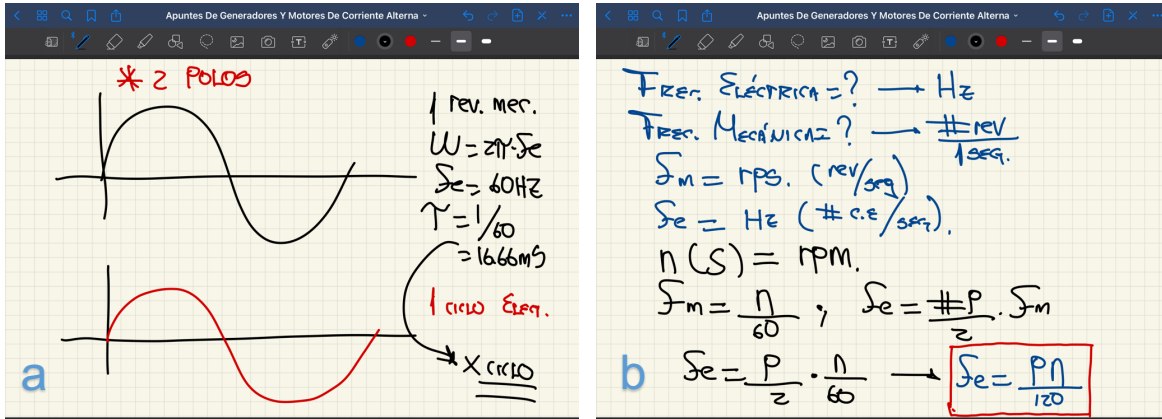 Apuntes De Generadores Y Motores De Corriente Alterna
* 2 POLOS
1 rev. mec.
W = 2π·fe
fe = 60HZ
T = 1/60
= 16.66mS
1 CICLO ELECT.
X CICLO
a
Apuntes De Generadores Y Motores De Corriente Alterna
FREC. ELÉCTRICA = ? → Hz
FREC. MECÁNICA = ? → # rev / 1 SEG.
fm = rps. (rev/seg)
fe = Hz (# c.e/seg).
n(S) = rpm.
fm = n/60 ; fe = #P/2 · fm
fe = P/2 · n/60 → fe = Pn/120
b